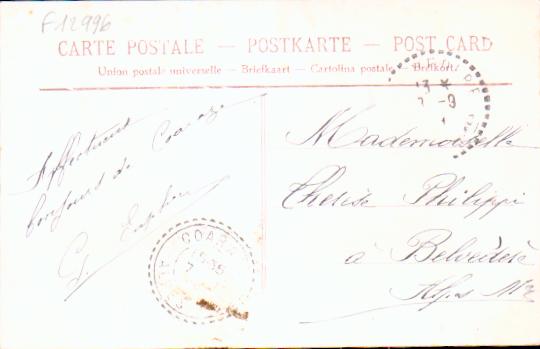 F12996
CARTE POSTALE — POSTKARTE — POST CARD
Union postale universelle — Briefkaart — Cartolina postale — Brefkort
Affectueux
bonjours de Coaraze
G.
COARA
Mademoiselle
Therese Philippi
à Belvédère
Alpes Mmes